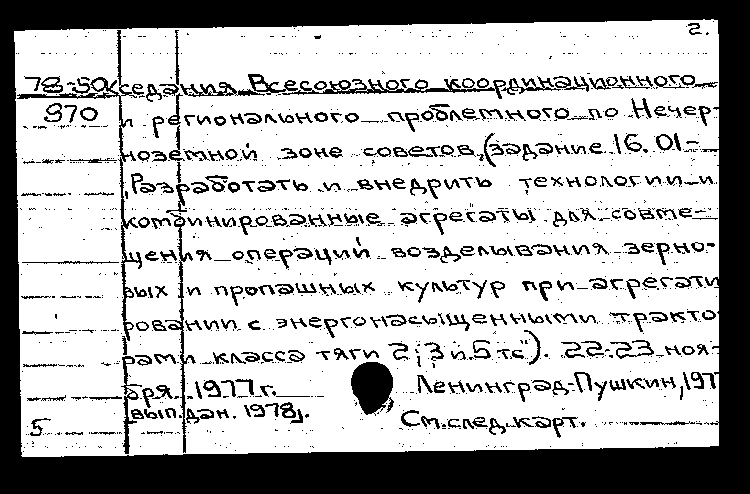 2.
78-50 седания Всесоюзного координационного
970 и регионального проблемного по Нечер-
ноземной зоне советов, (задание 16.01-
"Разработать и внедрить технологии и
комбинированные агрегаты для совме-
щения операций возделывания зерно-
вых и пропашных культур при агрегати
ровании с энергонасыщенными тракто
рами класса тяги 2; 3 и 5 тс"). 22-23 ноя-
бря 1977 г. Ленинград-Пушкин, 197
[вып.дан. 1978].
5 См.след.карт.